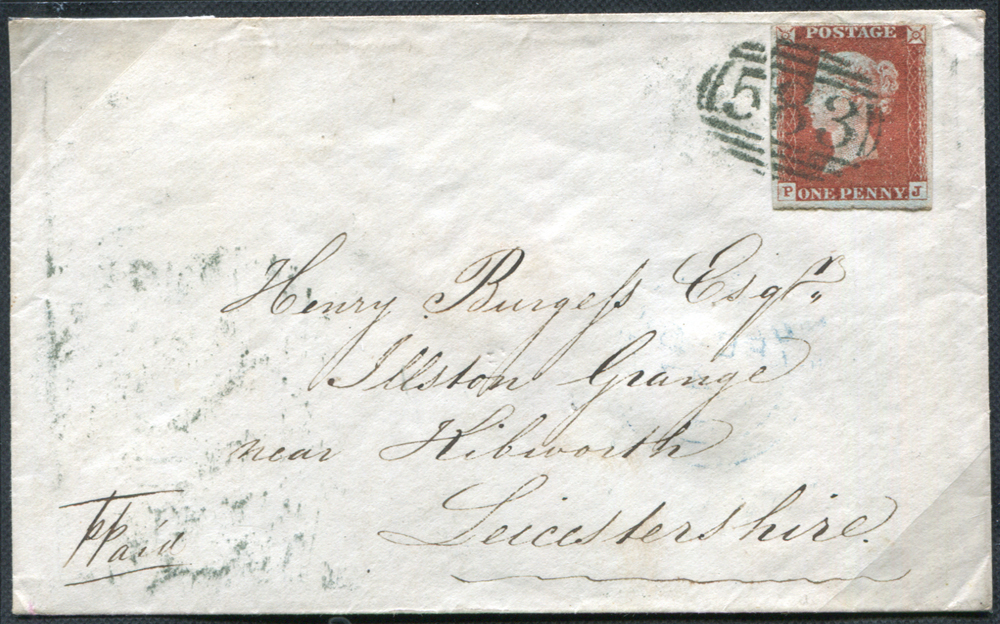 POSTAGE
533
P ONE PENNY. J
Henry Burgess Esqr.
Illston Grange
near Kibworth
Leicestershire.
PPaid